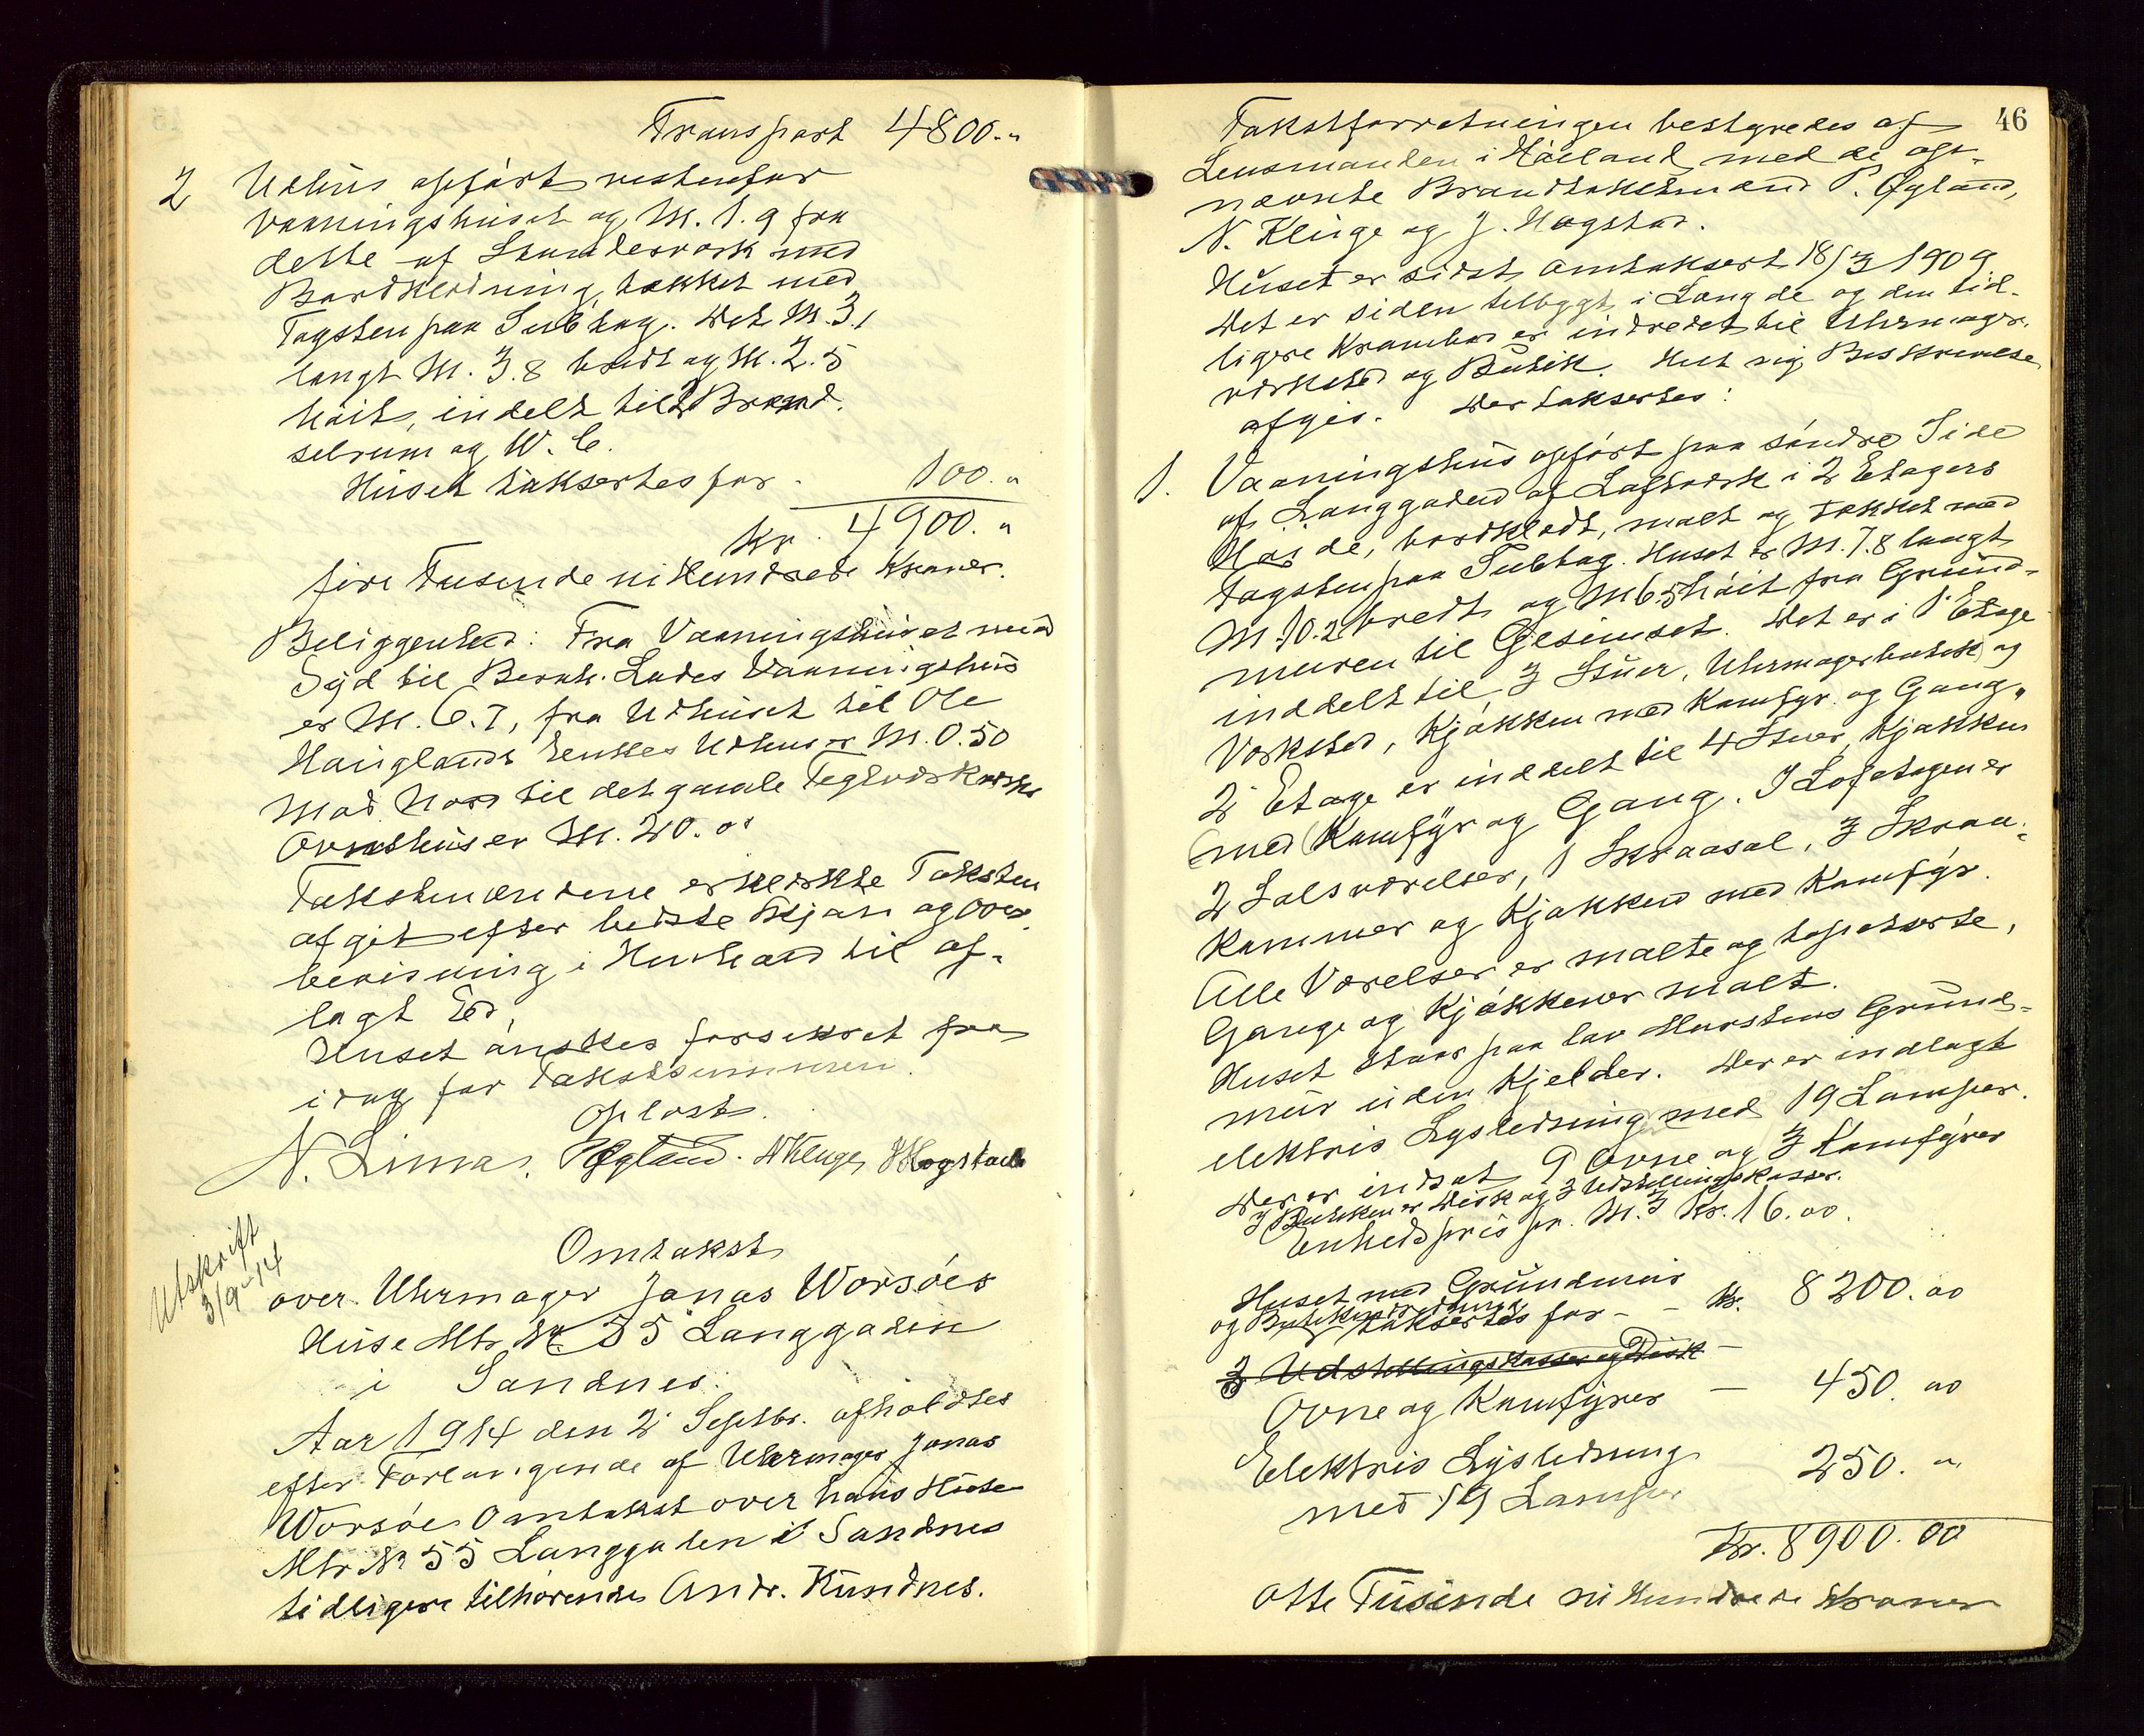 Transport 4800.-"
2 Udhus opført vestenfor
Vaaningshuset og M. 1.9 fra
dette af Stænderværk med
Bordklædning, tækket med
Tagsten paa Subtag. Det M. 3.1
langt M. 3.8 bredt og M. 2.5
høit, inddelt til 2 Brænd-
selrum og W. C.
Huset takseres for - 100."
Kr. 4900."
fire Tusende ni Hundrede Kroner.
Beliggenhed: Fra Vaaningshuset mod
Syd til Bernh. Lades Vaaningshus
er M. 6.7, fra Udhuset til Ole
Hauglands Enkes Udhus er M. 0.50
Mod Nord til det gamle Teglværks
Ovnshus er M. 20.00
Takstmændene erklærte Taksten
afgit efter bedste Skjøn og Over-
bevisning i Henhold til af-
lagt Ed.
Huset ønskes forsikret fra
idag for Takstsummen.
Oplæst.
N. Lima. P Øgland. N Klinge J Hogstad
Utskrift
3/9-14
Omtakst
over Uhrmager Jonas Worsöes
Huse Mtr. Nr. 55 Langgaden
i Sandnes.
Aar 1914 den 2' Septbr. afholdtes
efter Forlangende af Uhrmager Jonas
Worsöe Omtakst over hans Huse
Mtr. Nr 55 Langgaten i Sandnes
tidligere tilhørende Andr. Kusdnes.
46
Takstforretningen bestyredes af
Lensmanden i Høiland med de op-
nævnte Brandtakstmænd P. Øgland,
N. Klinge og J. Hogstad.
Huset er sidst omtaksert 18/3 1909
Det er siden tilbygt i Længde og den tid-
ligere Krambod er indredet til Uhrmager-
værksted og Butik. Helt ny Beskrivelse
afgis. Der taksertes:
1. Vaaningshus opført paa søndre Side
af Langgaden af Lafteværk i 2 Etagers
Høide, bordklædt, malt og tækket med
Tagsten paa Subtag. Huset er M. 7.8 langt
M. 10.2 bredt og M 6.5 høit fra Grund-
muren til Gesimset. Det er i 1' Etage
inddelt til 3 Stuer, Uhrmagerbutik og
Værksted, Kjøkken med Komfyr og Gang,
2' Etage er inddelt til 4 Stuer, Kjøkken
med Komfyr og Gang. I Loftetagen er
2 Salsværelser, 1 Skraasal, 3 Skraa-
kammer og Kjøkken med Komfyr.
Alle Værelser er malte og tapetserte,
Gange og Kjøkkener malt.
Huset staar paa lav Murstens Grund-
mur uden Kjelder. Der er indlagt
elektris Lysledning med 19 Lamper.
Der er indsat 9 Ovne og 3 Komfyrer
I Butikken er Disk og 3 Udstillingskasser.
Enhedspris pr. M.3 Kr. 16.00.
Huset med Grundmur
og Butikindredning
taksertes for - - Kr. 8200.00
3 Udstillingskasser og Disk -
Ovne og Komfyrer - 450.00
Elektris Lysledning
med 19 Lamper - 250."
Kr. 8900.00
Otte Tusinde ni Hundrede Kroner